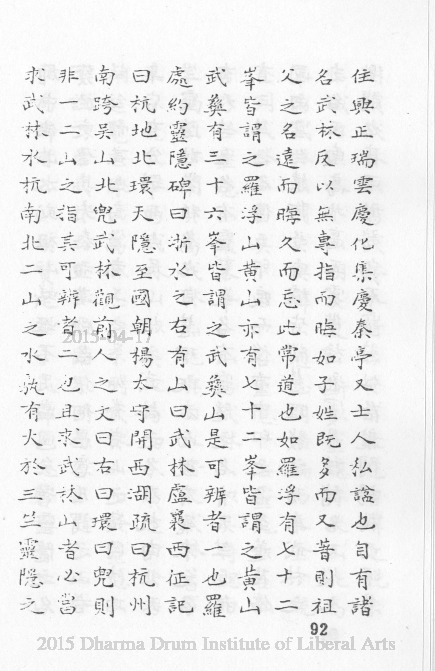 住興正瑞雲慶化集慶秦亭又士人私謚也自有諸
名武林反以無專指而晦如子姓既多而又著則祖
父之名遠而晦久而忘此常道也如羅浮有七十二
峯皆謂之羅浮山黃山亦有七十二峯皆謂之黃山
武彜有三十六峯皆謂之武彜山是可辨者一也羅
處約靈隱碑曰浙水之右有山曰武林盧襄西征記
曰杭地北環天隱至國朝楊太守開西湖疏曰杭州
南跨吳山北兜武林觀前人之文曰右曰環曰兜則
非一二山之指其可辨者二也且求武林山者必當
求武林水杭南北二山之水孰有大於三竺靈隱之
92
2015-04-17
2015 Dharma Drum Institute of Liberal Arts